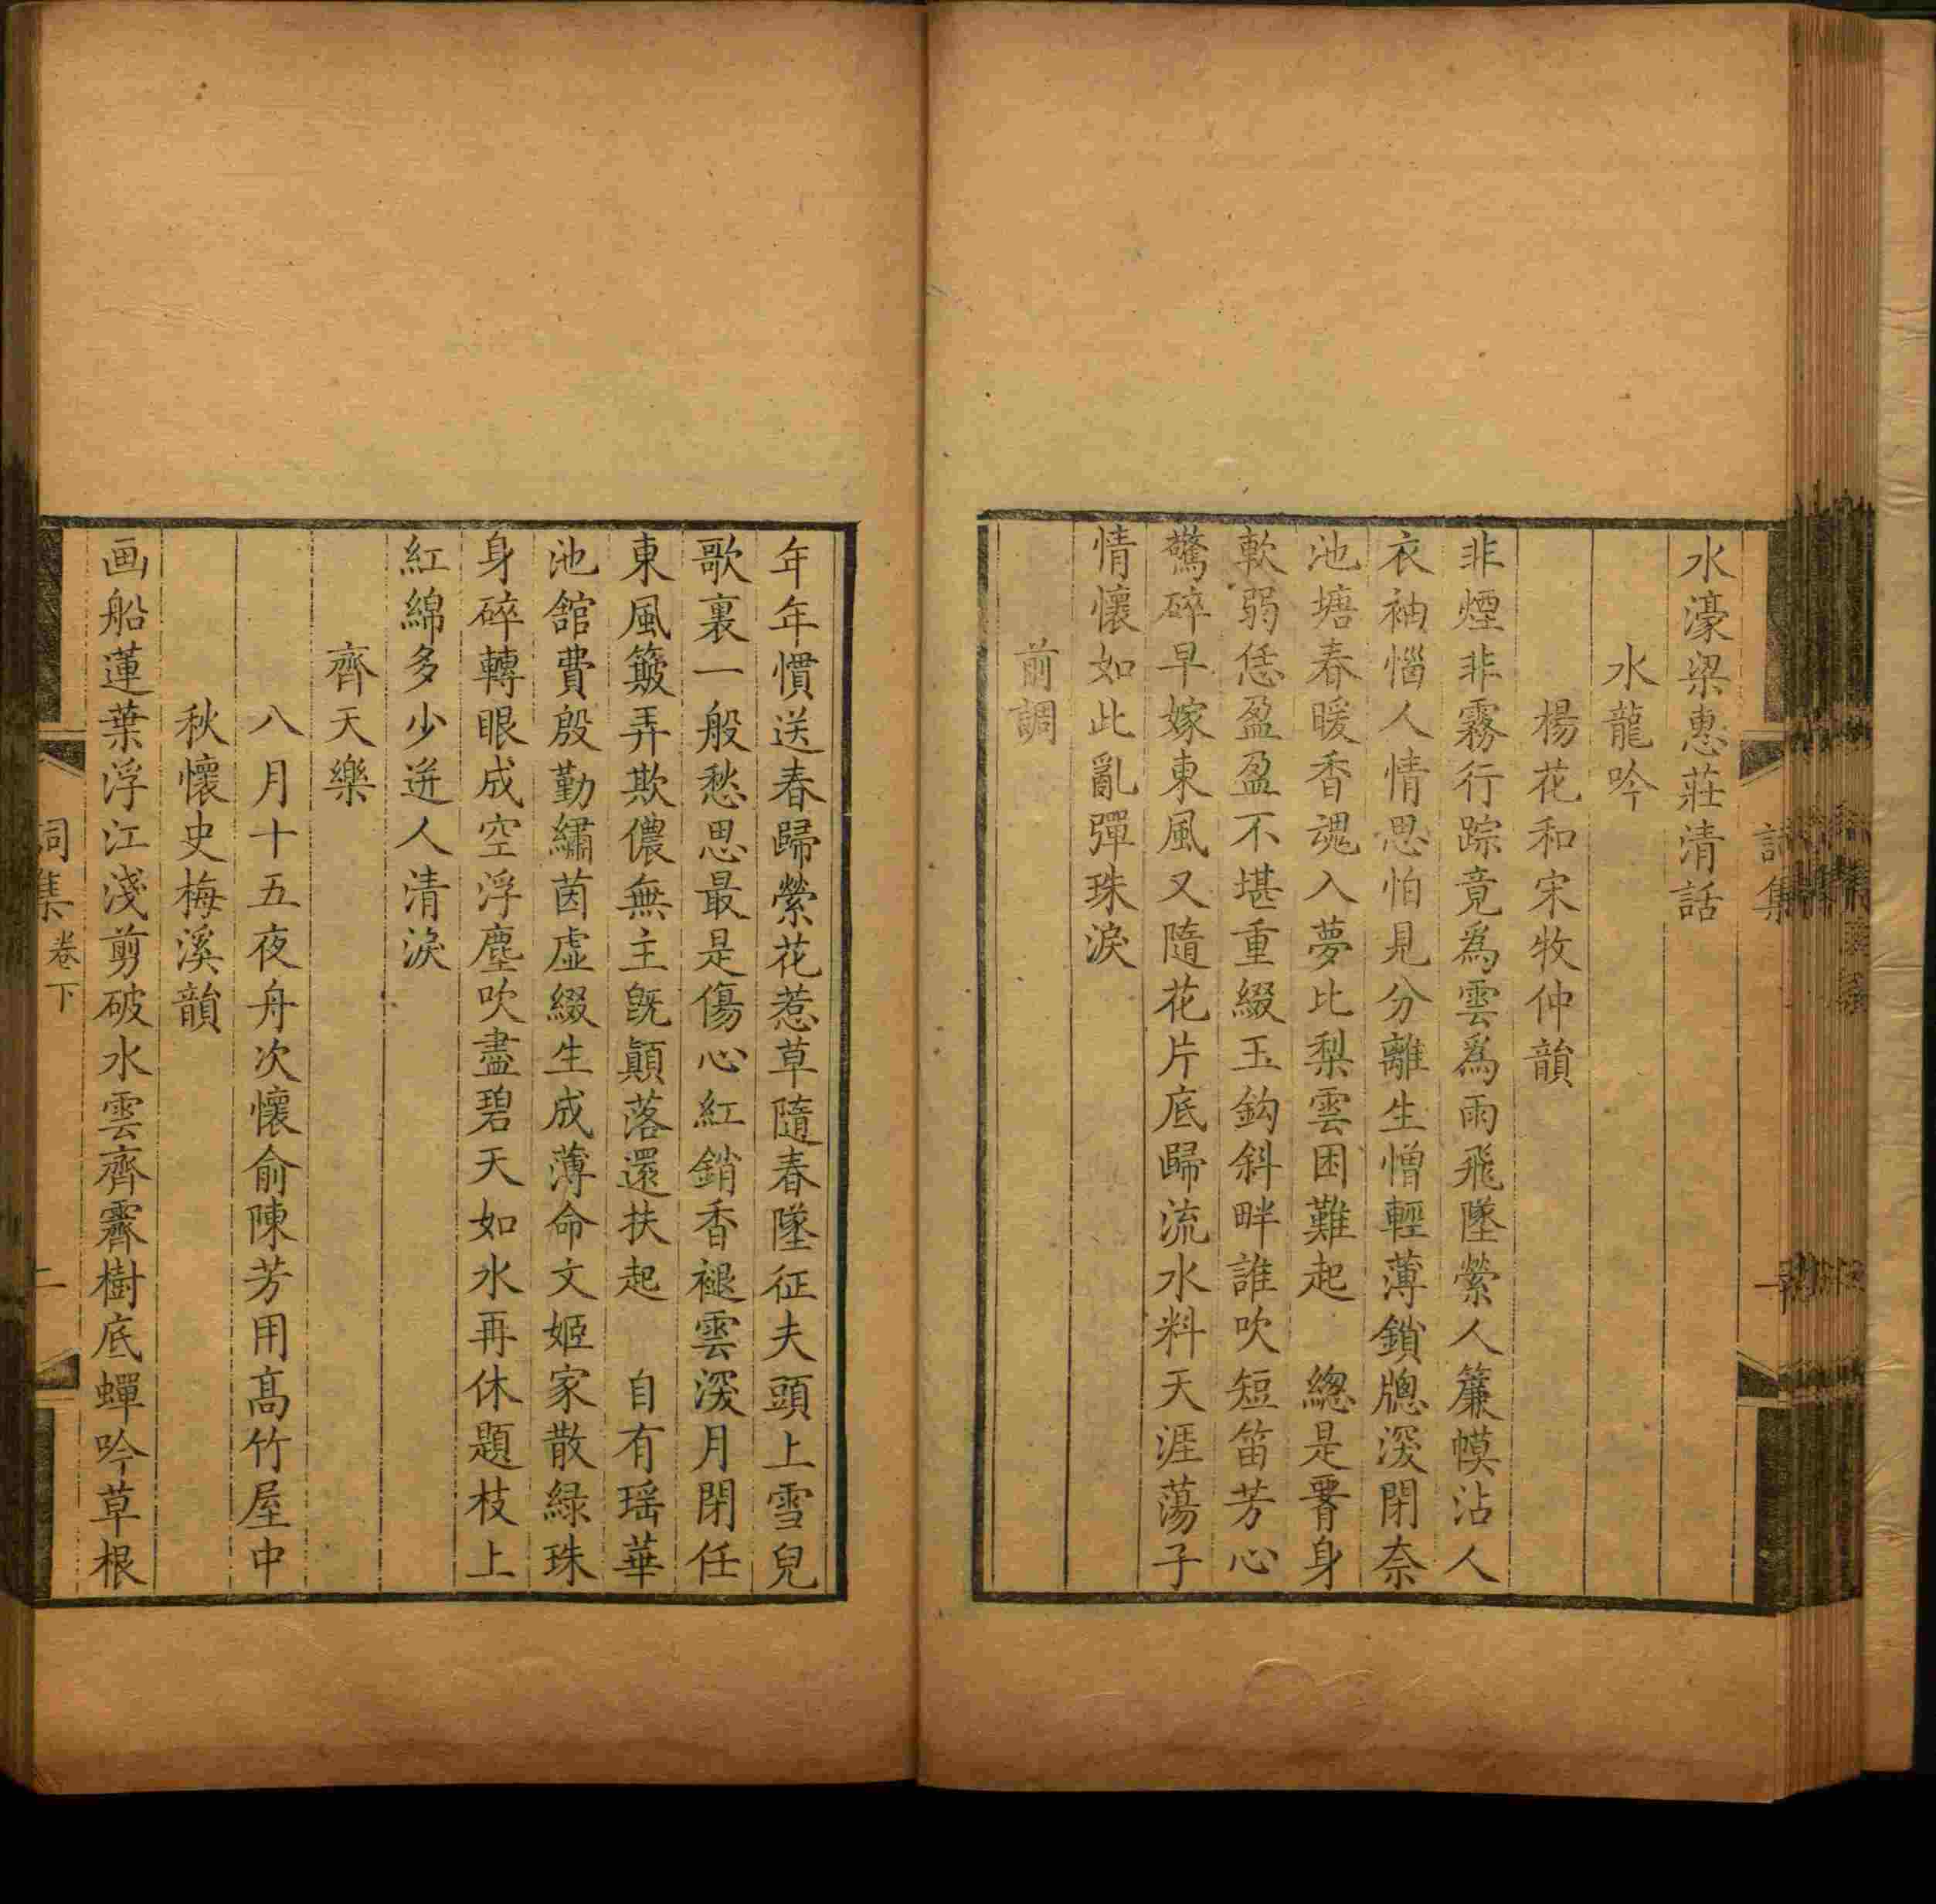 水濠梁惠莊清話
水龍吟
楊花和宋牧仲韻
非煙非霧行踪竟爲雲爲雨飛墜縈人簾幙沾人
衣袖惱人情思怕見分離生憎輕薄鎖牕深閉奈
池塘春暖香魂入夢比梨雲困難起　總是瞢身
軟弱恁盈盈不堪重綴玉鈎斜畔誰吹短笛芳心
驚碎早嫁東風又隨花片底歸流水料天涯蕩子
情懷如此亂彈珠淚
前調
年年慣送春歸縈花惹草隨春墜征夫頭上雪兒
歌裏一般愁思最是傷心紅銷香褪雲深月閉任
東風簸弄欺儂無主旣顚落還扶起　自有瑶華
池舘費殷勤繡茵虛綴生成薄命文姬家散緑珠
身碎轉眼成空浮塵吹盡碧天如水再休題枝上
紅綿多少逬人清淚
齊天樂
八月十五夜舟次懷俞陳芳用高竹屋中
秋懷史梅溪韻
画船蓮葉浮江淺剪破水雲齊霽樹底蟬吟草根
詞集
卷下
二